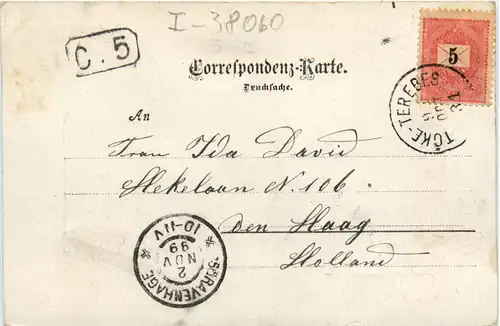 I-38060
C. 5
5
Correspondenz-Karte.
Drucksache.
TŐKE-TEREBES
31
An
Frau Ida David
Stekelaan N. 106
Den Haag
Holland
10-11V
2
NOV
99
*'SGRAVENHAGE*